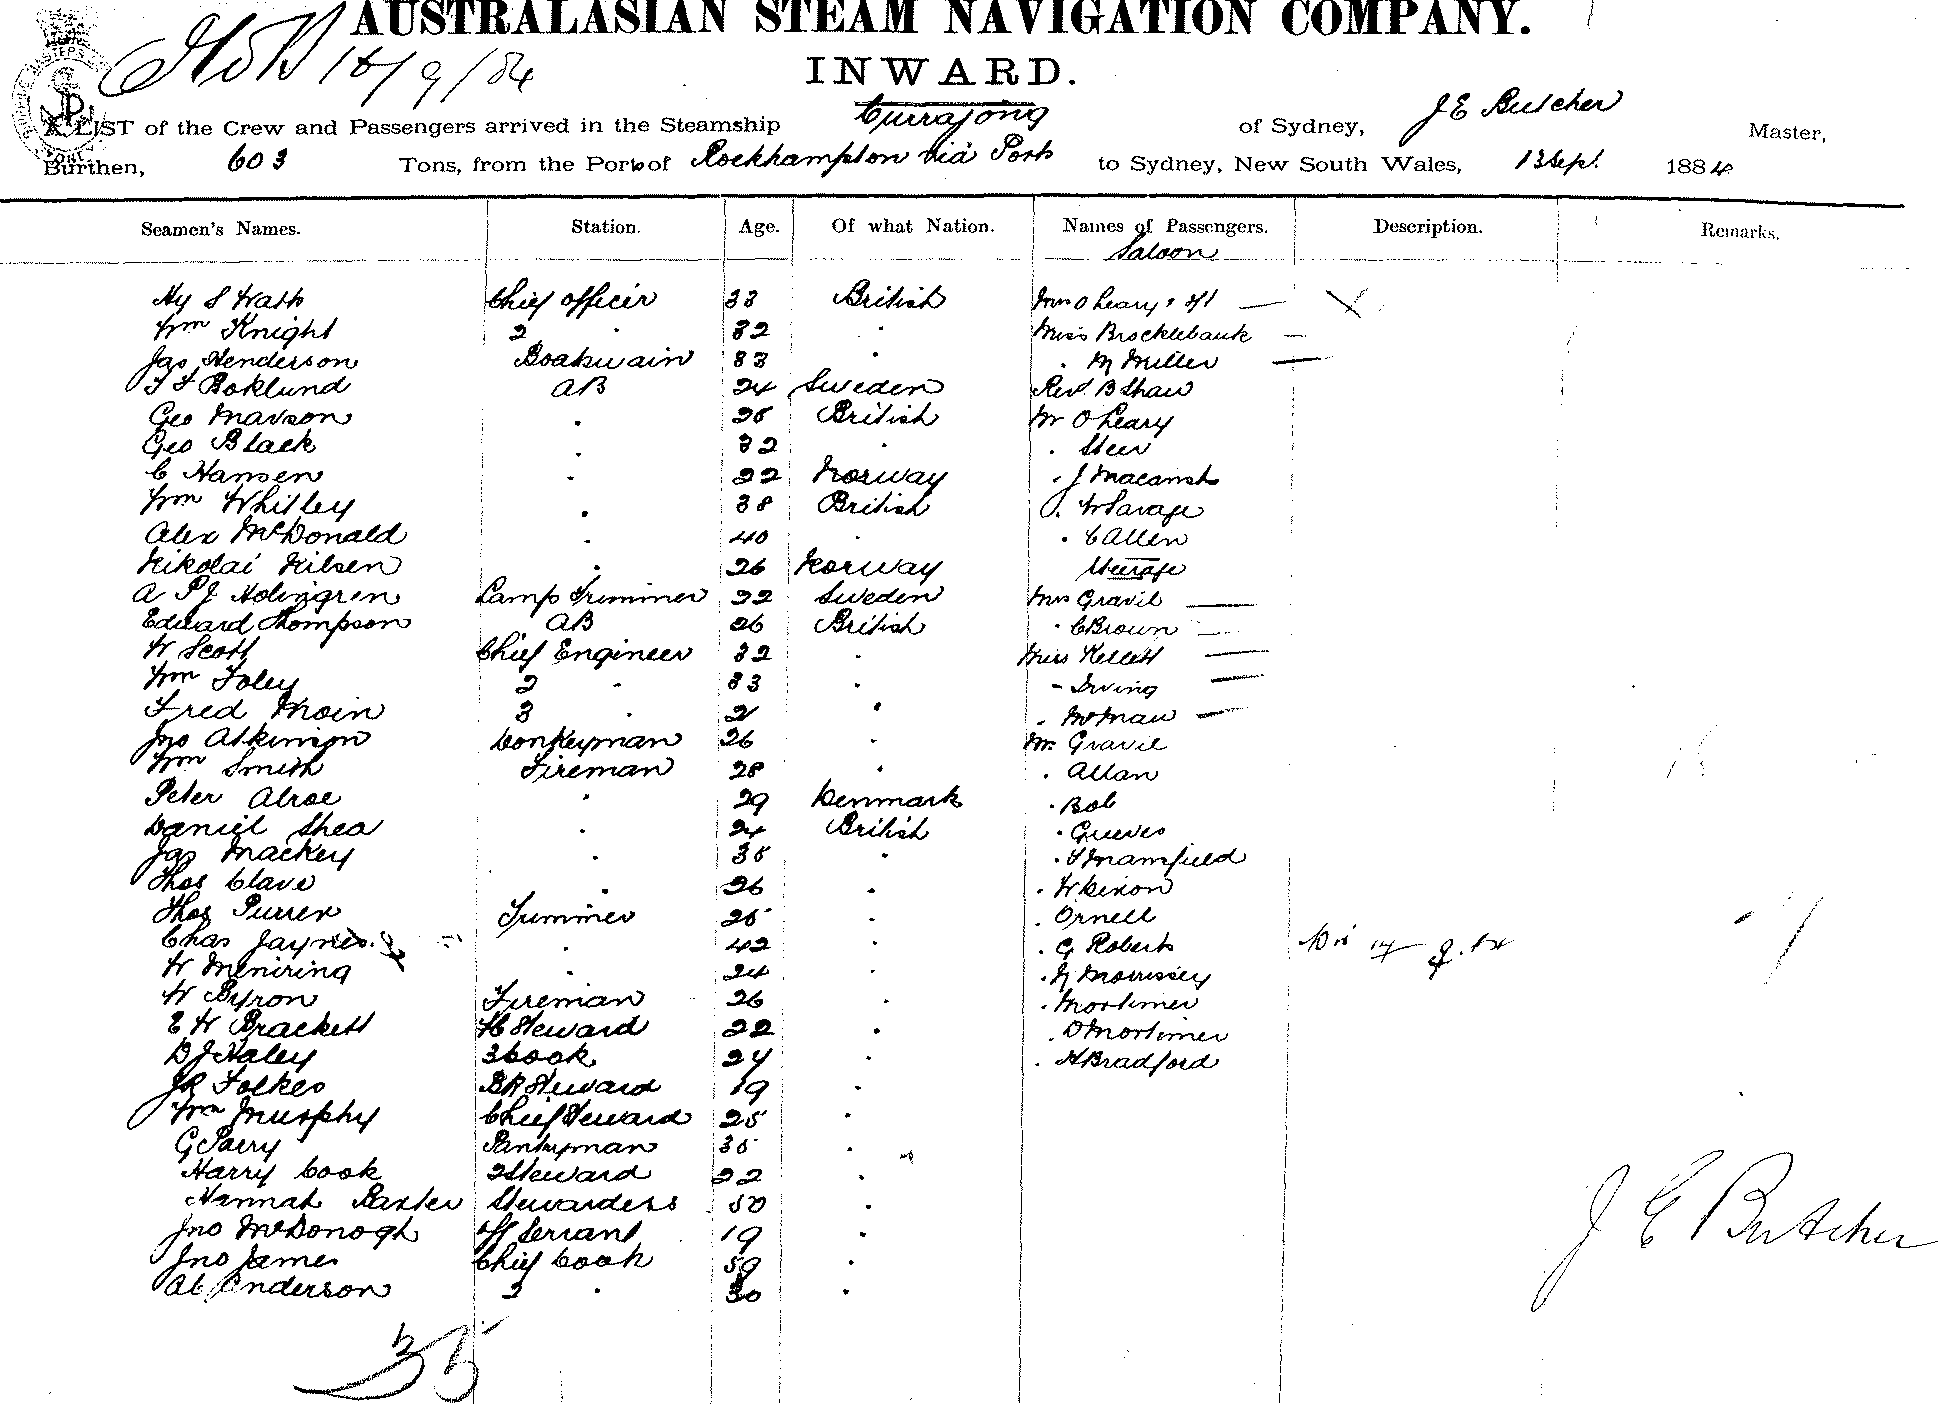 AUSTRALASIAN STEAM NAVIGATION COMPANY.
INWARD.
A LIST of the Crew and Passengers arrived in the Steamship Currajong of Sydney, J E Butcher Master,
Burthen, 603 Tons, from the Port of Rockhampton via Ports to Sydney, New South Wales, 13 Sept. 1884
Seamen's Names. Station. Age. Of what Nation. Names of Passengers. Description. Remarks.
Saloon
Hy S Wath Chief officer 33 British Mrs O Leary
Wm Knight 2 " 32 " Miss Brocklebank
Jas Henderson Boatswain 33 " " M Miller
Boklund AB 24 Sweden Revd. B Shaw
Geo Mavson " 25 British Mr O Leary
Geo Black " 32 " " Steer
C Hansen " 22 Norway " J Macansh
Wm Whitley " 38 British " W Savage
Alex McDonald " 40 " " C Allen
Nikolai Nilsen " 26 Norway Steerage
A P J Holmgren Lamp Trimmer 22 Sweden Mrs Gravil
Edward Thompson AB 26 British " C Brown
W Scott Chief Engineer 32 " Miss Kellett
Wm Foley 2 " 33 " " Irving
Fred Moin 3 " 21 " "
Jno Atkinson Donkeyman 26 " Mr. Gravil
Wm Smith Fireman 28 " " Allan
Peter Alroe " 29 Denmark " Bob
Daniel Shea " 24 British " Greeves
Jas Mackey " 35 " " Mansfield
Thos Clave " 26 " " W Dixon
Thos Purrer Trimmer 25 " " Ornell
Chas Jaynes " 42 " " G Roberts
W Meniring " 24 " " Morrissey
W Byron Fireman 26 " " Mortimer
E W Brackett Steward 22 " " D Mortimer
D J Haley 3 Cook 24 " " H Bradford
Folkes BR Steward 19 "
Wm Murphy Chief Steward 25 "
G Parry Pantryman 35 "
Harry Cook 2 Steward 22 "
Hannah Baxter Stewardess 50 "
Jno McDonogh off Servant 19 "
Jno James Chief Cook 59 "
Anderson 2 " 30 "
J E Butcher
35